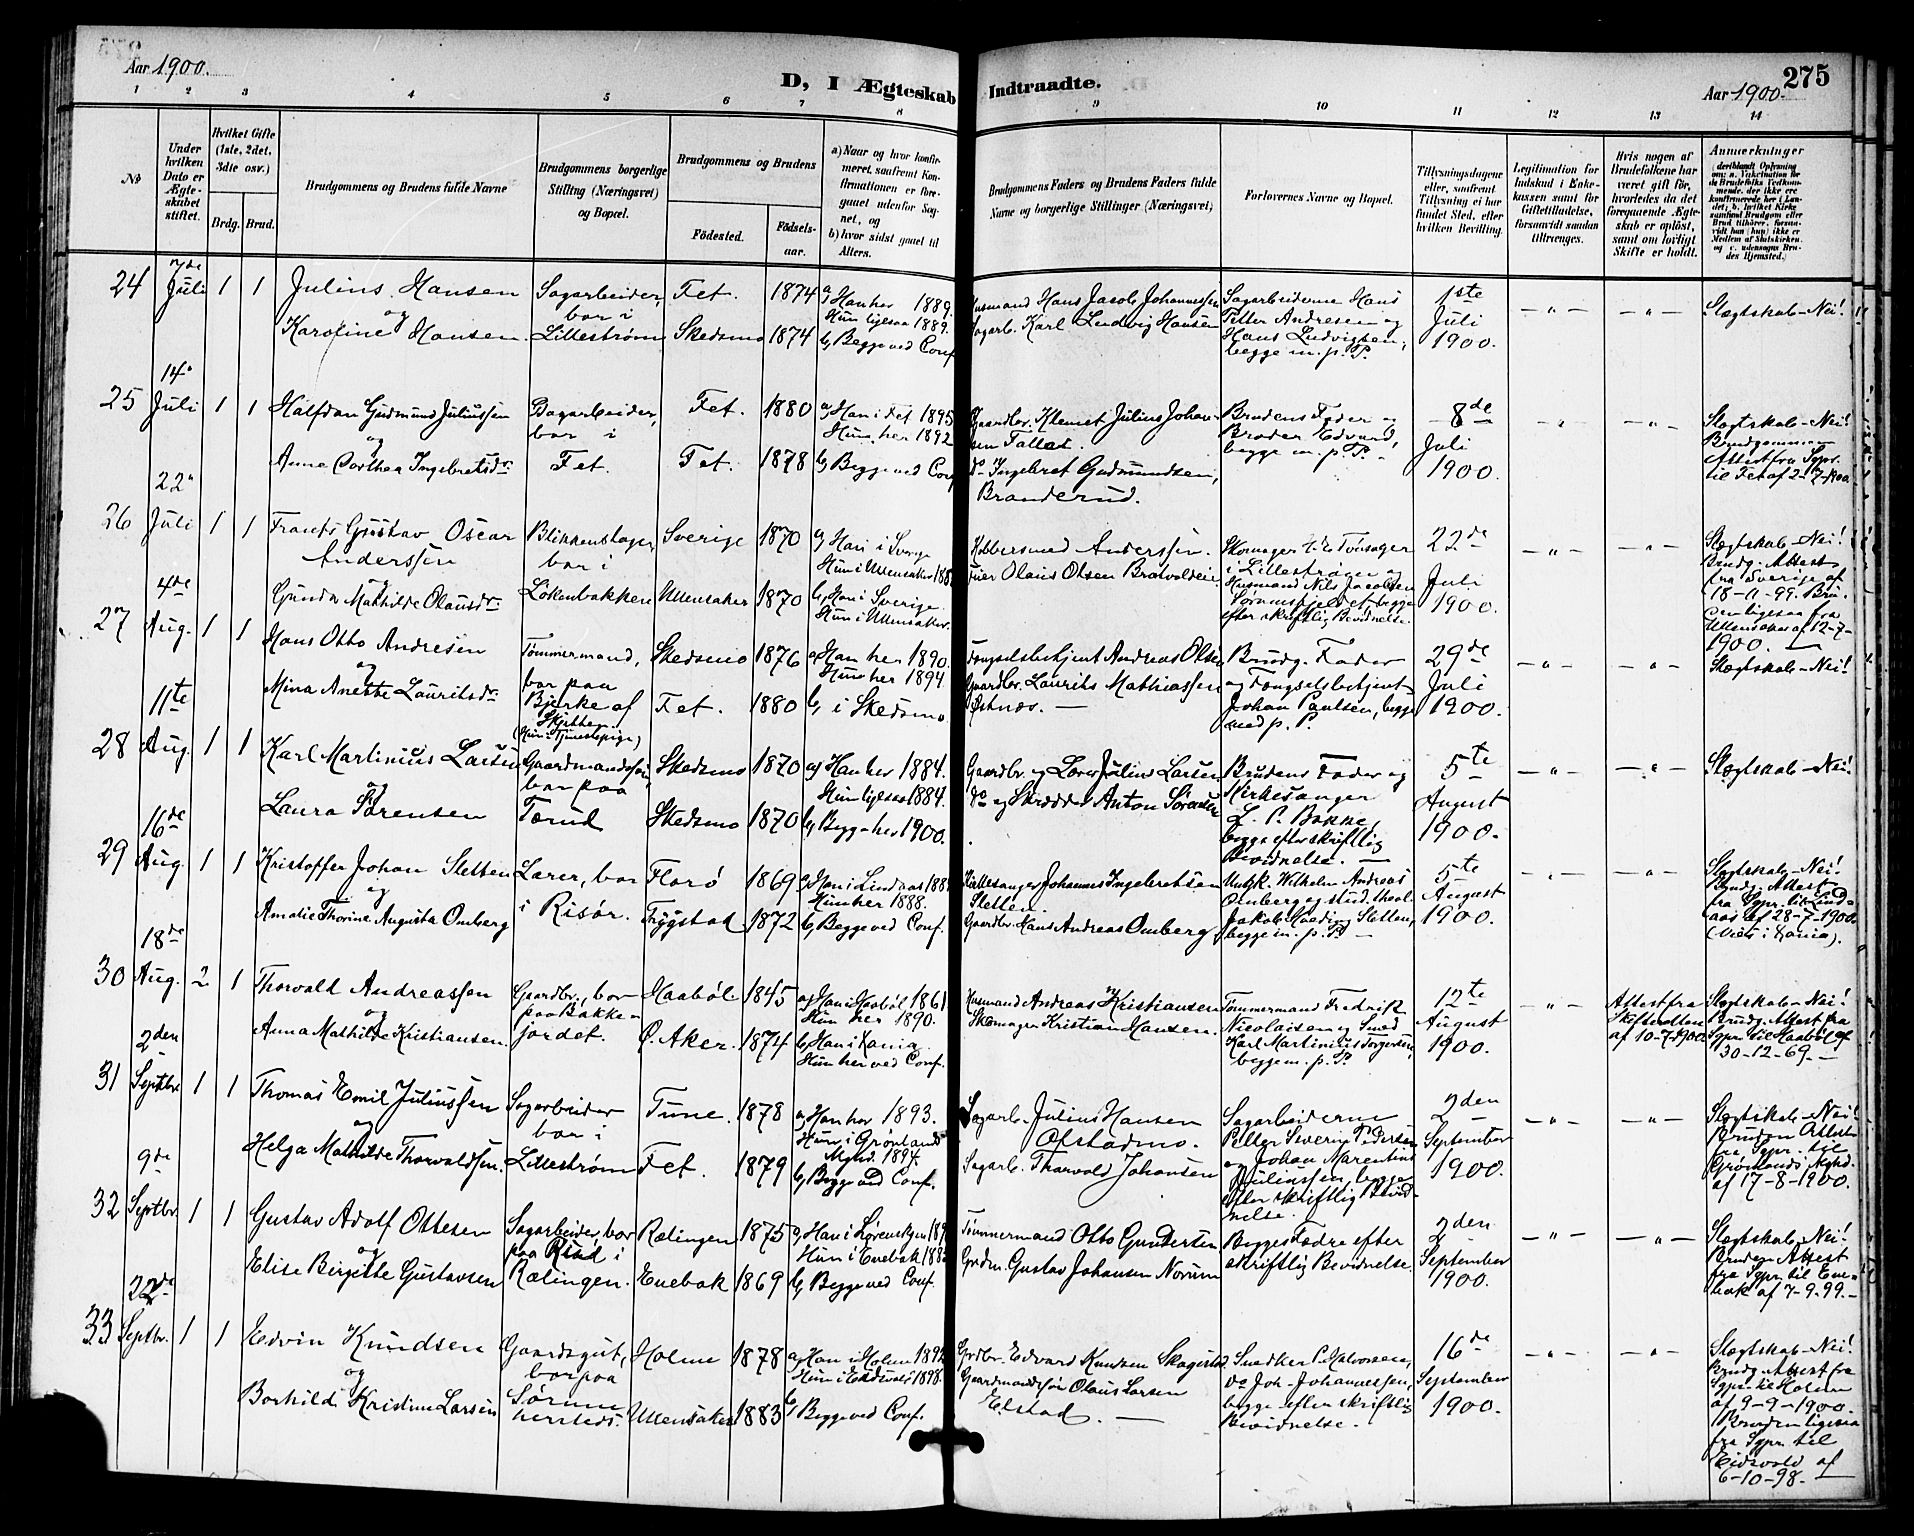 Aar 1900.
D, I Ægteskab Indtraadte.
Aar 1900.
275
1 2 3 4 5 6 7 8 9 10 11 12 13 14
No
Under hvilken Dato er Ægteskabet stiftet.
Hvilket Gifte (1ste, 2det, 3die osv.)
Brdg. Brud.
Brudgommens og Brudens fulde Navne
Brudgommens borgerlige Stilling (Næringsvei) og Bopæl.
Brudgommens og Brudens
Födested.
Födselsaar.
a) Naar og hvor konfirmeret, saafremt Konfirmationen er foregaaet udenfor Sognet, og
b) hvor sidst gaaet til Alters.
Brudgommens Faders og Brudens Faders fulde Navne og borgerlige Stillinger (Næringsvei)
Forlovernes Navne og Bopæl.
Tillysningsdagene eller, saafremt Tillysning ei har fundet Sted, efter hvilken Bevilling.
Legitimation for Indskud i Enkekassen samt for Giftetilladelse, forsaavidt saadan tiltrænges.
Hvis nogen af Brudefolkene har været gift för, hvorledes da det foregaaende Ægteskab er oplöst, samt om lovligt Skifte er holdt.
Anmærkninger
24 7de Juli 1 1
Julius Hansen
og
Karoline Hansen.
Sagarbeider, bor i Lilleström
Fet. 1874
Skedsmo 1874
a) Han her 1889.
Hun ligesaa 1889.
b) Begge ved Conf.
Husmand Hans Jacob Johannessen
Sagarb. Karl Ludvig Hansen
Sagarbeiderne Hans Petter Andresen og Hans Ludvigsen, begge m. p. P.
1ste Juli 1900.
Slægtskab - Nei!
25 14de Juli 1 1
Halfdan Gudmund Juliussen
og
Anne Dorthea Ingebretsdr
Sagarbeider, bor i Fet.
Fet. 1880
Fet. 1878
a) Han i Fet 1895
Hun her 1892
b) Begge ved Conf
Gaardbr. Klemet Julius Johansen Tallet.
do Ingebret Gudmundsen, Branderud.
Brudens Fader og Broder Edvard, begge m. p. P.
8de Juli 1900
Slægtskab - Nei!
Brudgommen Attest fra Sgpr. til Fet af 2-7-1900
26 22de Juli 1 1
Frants Gustav Oscar Anderssen
og
Gunda Mathilde Olausdr.
Blikkenslager, bor i Lökenbakken
Sverige 1870
Ullensaker 1870
a) Han i Sverige
Hun i Ullensaker
b) Han i Sverige.
Hun i Ullensaker.
Kobbersmed Anderssen.
Olaus Olsen
Skomager i Lilleström og Husmand Nils Jacobsen begge efter skriftlig Bevidnelse.
22de Juli 1900.
Slægtskab - Nei!
Brudg. Attest fra Sverige af 18-11-99. Bruden ligesaa fra Ullensaker af 12-7-1900.
27 4de Aug. 1 1
Hans Otto Andresen
og
Mina Anette Lauritsdr
Tömmermand, bor paa Bjerke af Skjetten.
(Hun: Tjenestepige)
Skedsmo 1876
Fet. 1880
a) Han her 1890.
Hun her 1894.
b) i Skedsmo
Fængselsbetjent Andreas Olsen
Gaardbr. Laurits Mathiassen
Brudg. Fader og Fængselsbetjent Johan Paulsen, begge med p. P.
29de Juli 1900.
Slægtskab - Nei!
28 11te Aug. 1 1
Karl Martinius Larsen
og
Laura Sörensen
Gaardmandssön, bor paa Tærud
Skedsmo 1870
Skedsmo 1870
a) Han her 1884.
Hun ligesaa 1884.
b) Begge her 1900.
Gaardbr. og Lærer Julius Larsen
do og Skrædder Anton Sörensen
Brudens Fader og Kirkesanger L. P. Bakke, begge efter skriftlig Bevidnelse.
5te August 1900.
Slægtskab - Nei!
29 16de Aug. 1 1
Kristoffer Johan Sletten
og
Amalie Thorine Augusta Omberg
Lærer, bor i Risör.
Florö 1869
Trygstad 1872
a) Han i Lindaas
Hun her 1888.
b) Begge ved Conf.
Kirkesanger Johannes Ingebretsen Sletten.
Gaardbr. Hans Andreas Omberg
Wilhelm Andreas Omberg og stud. theol. Jakob Sletten, begge m. p. P.
5te August 1900.
Slægtskab - Nei!
Brudg. Attest fra Sgpr. til Lindaas af 28-7-1900.
(Viet i Xania).
30 18de Aug. 2 1
Thorvald Andreassen
og
Anna Mathilde Kristiansen.
Gaardbr., bor paa Bakkejordet.
Haaböl. 1845
Ö. Aker. 1874
a) Han i Haaböl 1861
Hun her 1890.
b) Han i Xania.
Hun her ved Conf.
Husmand Andreas Kristiansen
Skomager Kristian Hansen.
Tömmermand Fredrik Nicolaisen og Smed Karl Martinius Torgersen, begge m. p. P.
12te August 1900.
Attest fra Skifteretten af 10-7-1900.
Slægtskab - Nei!
Brudg. Attest fra Sgpr. til Haaböl af 30-12-69.
31 2den Septbr. 1 1
Thomas Emil Juliussen
og
Helga Mathilde Thorvaldsen.
Sagarbeider bor i Lilleström
Tune. 1878
Fet. 1879
a) Han her 1893.
Hun i Grönlands Mghd. 1894.
b) Begge ved Conf.
Sagarb. Julius Hansen Ofstadmo.
Sagarb. Thorvald Johansen
Sagarbeiderne Petter Severin Pedersen og Johan Marentius Juliussen, begge efter skriftlig Bevidnelse.
2den September 1900.
Slægtskab - Nei!
Bruden Attest fra Sgpr. til Grönlands Mghd. af 17-8-1900.
32 9de Septbr. 1 1
Gustav Adolf Ottesen
og
Elise Birgitte Gustavsen
Sagarbeider, bor paa Risud i Rælingen.
Rælingen 1875
Enebak 1869
a) Han i Lörenskog
Hun i Enebak
b) Begge ved Conf.
Tömmermand Otto Gundersen
Grdm. Gustav Johansen Norum
Begges Fædre efter skriftlig Bevidnelse.
2den September 1900.
Slægtskab - Nei!
Bruden Attest fra Sgpr. til Enebak af 7-9-99.
33 22de Septbr. 1 1
Edvin Knudsen
og
Borhild Kristine Larsen
Gaardsgut, bor paa Sörum
Holme 1878
Ullensaker 1883
a) Han i Holme
Hun i Eidsvold 1898.
b) Begge ved Conf.
Grdbr. Edvard Knudsen
Gaardmandssön Olaus Larsen Elstad.
Snedker P. Halvorsen, do Joh. Johannessen, begge efter skriftlig Bevidnelse.
16de September 1900.
Slægtskab - Nei!
Brudg. Attest fra Sgpr. til Holme af 9-9-1900.
Bruden ligesaa fra Sgpr. til Eidsvold af 6-10-98.